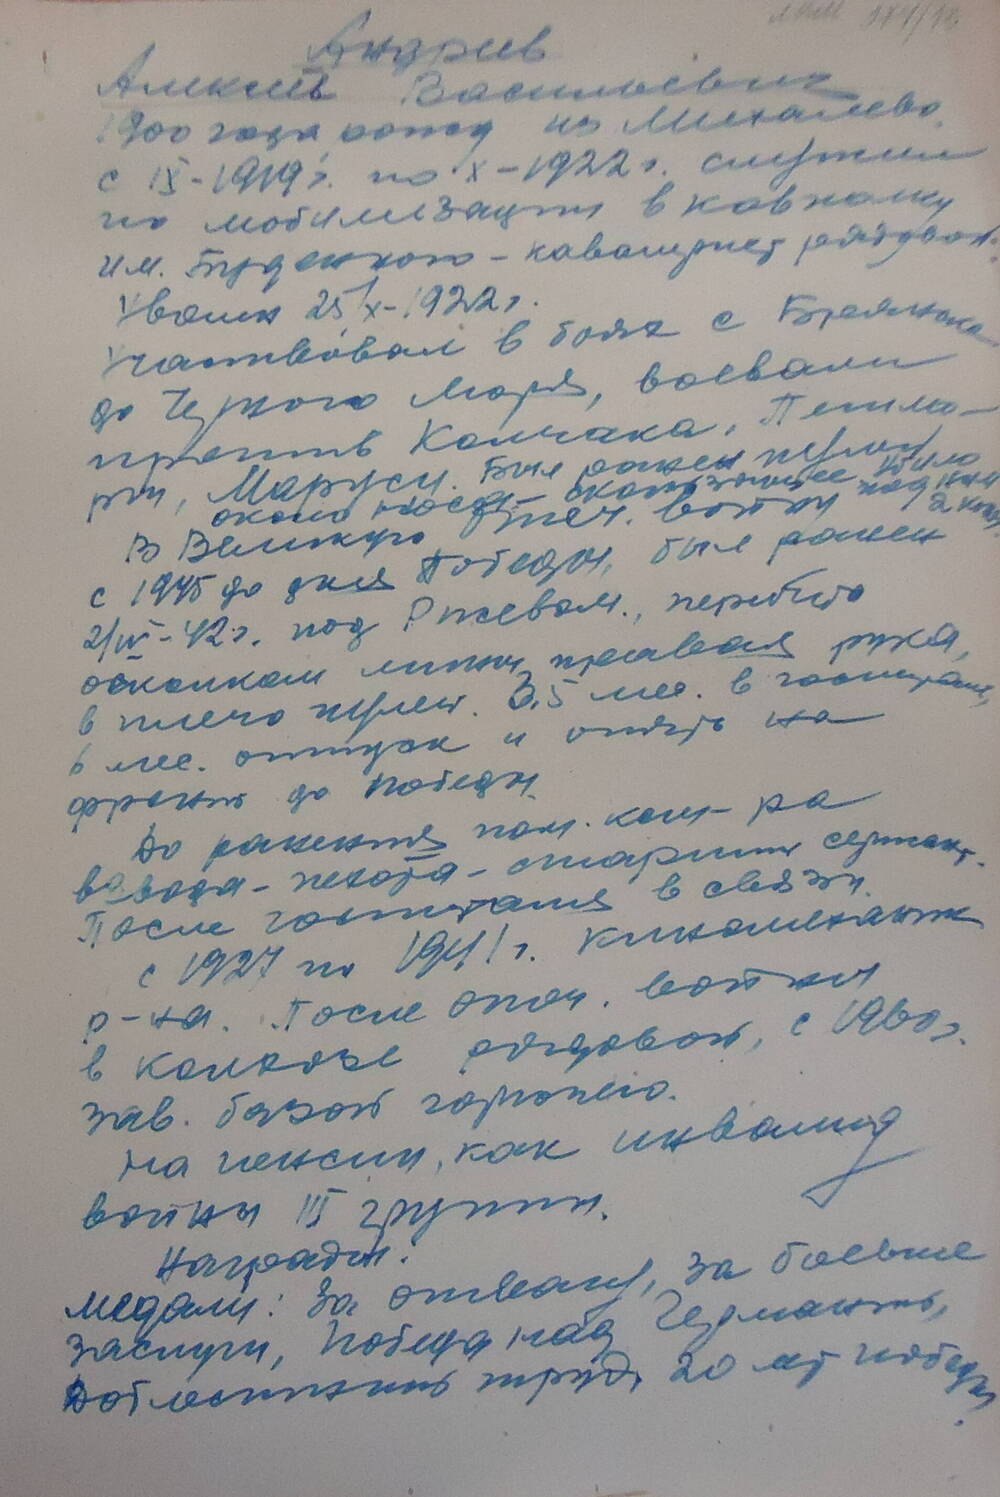 374/18
Андрев
Алексей Васильевич
1900 года рожд из Михалево.
с IX-1919 г. по X-1922 г. служил
по мобилизации в кавполку
им. Буденного - кавалерист рядовой.
Уволен 25/X-1922 г.
Участвовал в боях с
до Черного моря, воевали
против Колчака, Петлю-
ры, Маруси. Был ранен пулей
около носа - скользящее убило
под ним 2 кон.
В Великую Отеч. войну
с 1945 до дня Победы, был ранен
2/IV-42 г. под Ржевом., перебита
осколком мины правая рука,
в плечо пулей. 3,5 мес. в госпитале,
6 мес. отпуск и опять на
фронт до победы.
До ранения пом. ком-ра
взвода - пехота - старший сержант.
После госпиталя в связи.
с 1927 по 1941 г. киномеханик
р-на. После отеч. войны
в колхозе рядовой, с 1960 г.
зав. базой горючего.
На пенсии, как инвалид
войны III группы.
Награды:
медали: За отвагу, За боевые
заслуги, Победа над Германией,
Доблестный труд, 20 лет победы.